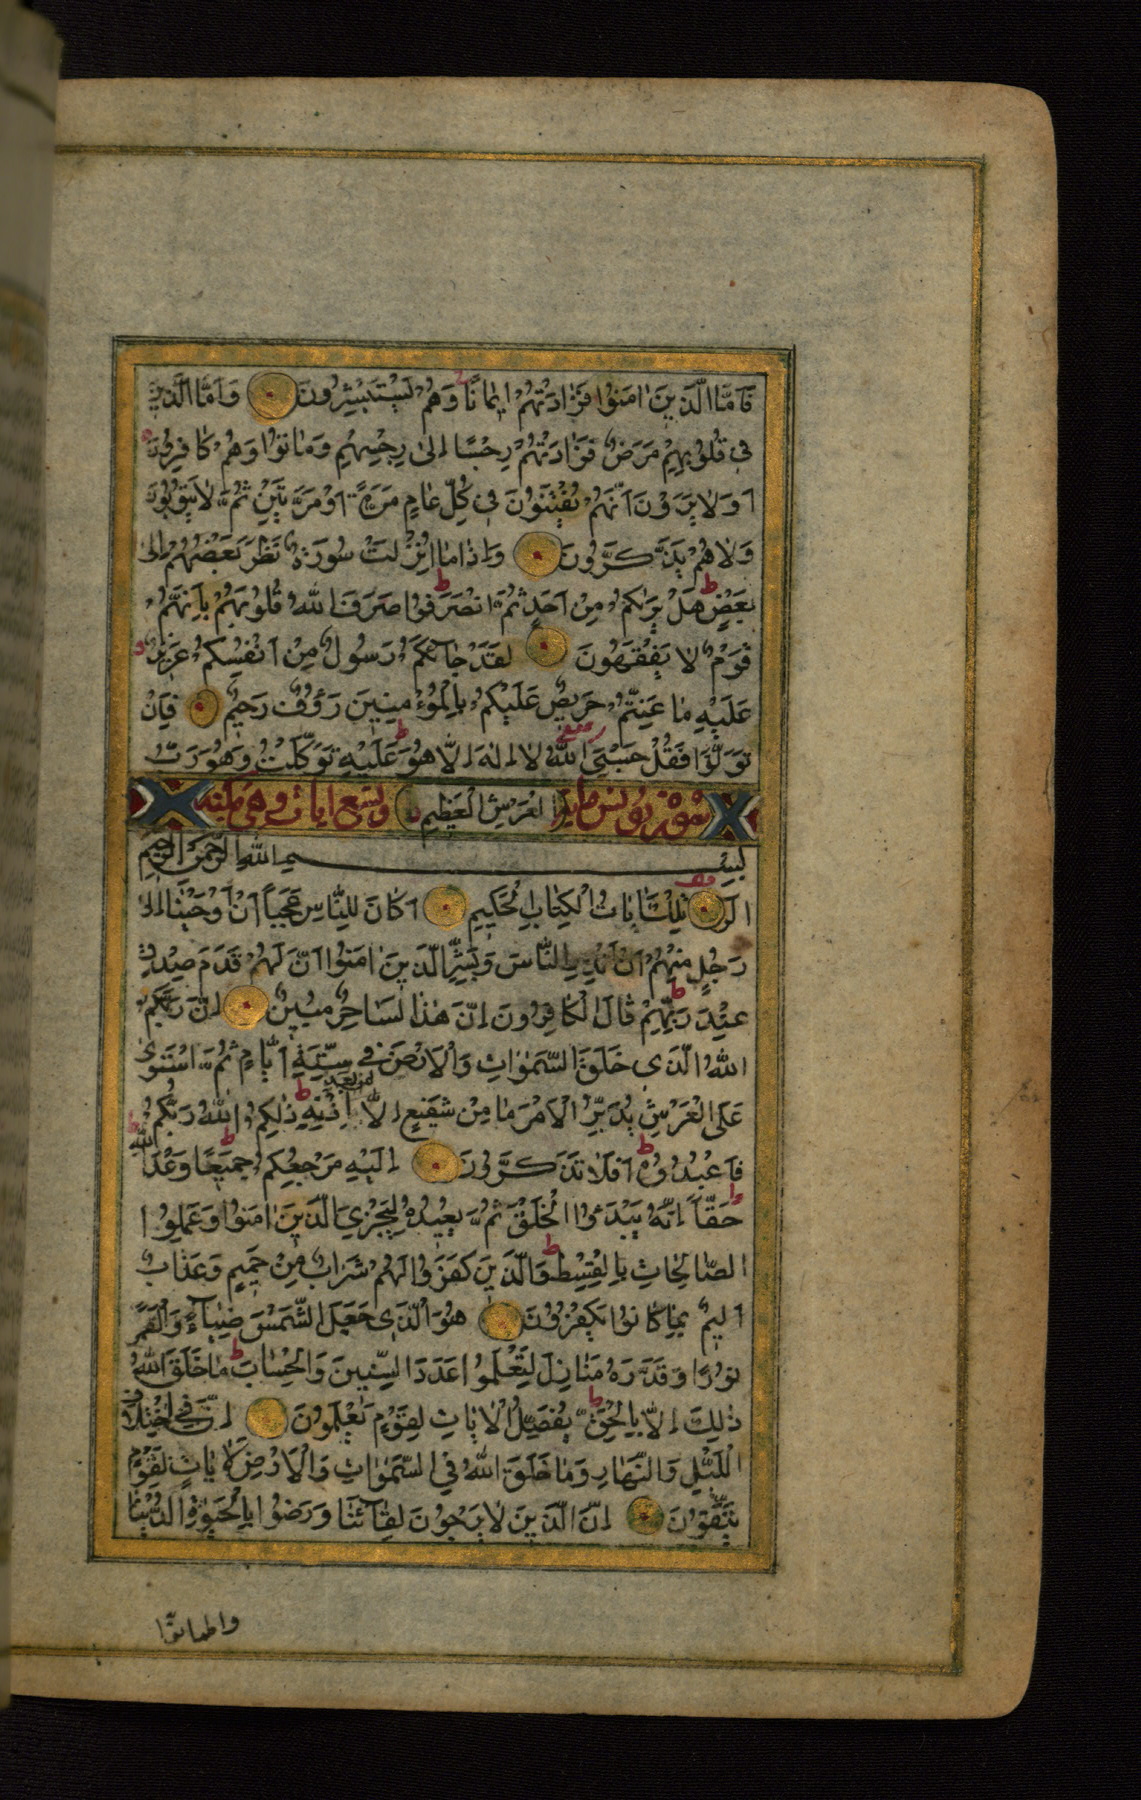 فَاَمَّا الَّذِينَ اٰمَنُوا فَزٰادَتْهُمْ اِيمٰانًا وَهُمْ يَسْتَبْشِرُونَ وَاَمَّا الَّذِينَ
فِى قُلُوبِهِمْ مَرَضٌ فَزٰادَتْهُمْ رِجْسًا اِلىٰ رِجْسِهِمِ وَمٰاتوُا وَهُمْ كٰافِرُونَ
اَوَلاٰ يَرَوْنَ اَنَّهُمْ يُفْتَنُونَ فِى كُلِّ عٰامٍ مَرَّةً اَوْ مَرَّتَيْنِ ثُمَّ لاٰيَتوُبُونَ
وَلاٰهُمْ يَذَّكَّرُونَ وَاِذٰا مٰا اُنْزِلَتْ سُورَةٌ نَظَرَ بَعْضُهُمْ اِلىٰ
بَعْضٍ هَلْ يَرٰيكُمْ مِنْ اَحَدٍ ثُمَّ انْصَرَفوُا صَرَفَ اللهُ قُلوُبَهُمْ بِاَنَّهُمْ
قَوْمٌ لاٰ يَفْقَهُونَ لَقَدْ جٰآئَكُمْ رَسُولٌ مِنْ اَنْفُسِكُمْ عَزِيزٌ
عَلَيْهِ مٰا عَنِتُّمْ حَرِيصٌ عَلَيْكُمْ بِالْمُوْءْمِنِينَ رَؤُفٌ رَحِيمٌ فَاِنْ
تَوَلَّوْا فَقُلْ حَسْبِىَ اللهُ لاٰ اِلٰهَ اِلاّٰ هُوَ عَلَيْهِ تَوَكَّلْتُ وَهُوَ رَبُّ
سورة يونس مايه الْعَرْشِ الْعَظِيمِ وتسع ايات وهى مكية
بِسْمِ اللهِ الرَّحْمٰنِ الرَّحِيمِ
الۤرٰ تِلْكَ اٰيٰاتُ الْكِتٰابِ الْحَكِيمِ اَكٰانَ لِلنّٰاسِ عَجَباً اَنْ اَوْحَيْنٰا اِلىٰ
رَجُلٍ مِنْهُمْ اَنْ اَنْذِرِ النّٰاسَ وَبَشِّرِ الَّذِينَ اٰمَنُوا اَنَّ لَهُمْ قَدَمَ صِدْقٍ
عِنْدَ رَبِّهِمْ قٰالَ الْكٰافِرُونَ اِنَّ هٰذٰا لَسٰاحِرٌ مُبِينٌ اِنَّ رَبَّكُمُ
اللهُ الَّذِى خَلَقَ السَّمٰوٰاتِ وَالْاَرْضَ فِى سِتَّةِ اَيّٰامٍ ثُمَّ اسْتَوىٰ
عَلَى الْعَرْشِ يُدَبِّرُ الْاَمْرَ مٰا مِنْ شَفِيعٍ اِلاّٰ مِنْ بَعْدِ اِذْنِهِ ذٰلِكُمُ اللهُ رَبُّكُمْ
فَاعْبُدُوهُ اَفَلاٰ تَذَكَّرُونَ اِلَيْهِ مَرْجِعُكُمْ جَمِيعًا وَعْدَ اللهِ
حَقّاً اِنَّهُ يَبْدَئُوا الْخَلْقَ ثُمَّ يُعِيدُهُ لِيَجْزِىَ الَّذِينَ اٰمَنُوا وَعَمِلُوا
الصّٰالِحٰاتِ بِالْقِسْطِ وَالَّذِينَ كَفَرُوا لَهُمْ شَرٰابٌ مِنْ حَمِيمٍ وَعَذٰابٌ
اَلِيمٌ بِمٰا كٰانُوا يَكْفُرُونَ هُوَ الَّذِى جَعَلَ الشَّمْسَ ضِيٰآءً وَالْقَمَرَ
نوُرًا وَقَدَّرَهُ مَنٰازِلَ لِتَعْلَموُا عَدَدَ السِّنِينَ وَالْحِسٰابَ مٰا خَلَقَ اللهُ
ذٰلِكَ اِلاّٰ بِالْحَقِّ يُفَصِّلُ الْاٰيٰاتِ لِقَوْمٍ يَعْلَمُونَ اِنَّ فِى اخْتِلاٰفِ
اللَّيْلِ وَالنَّهٰارِ وَمٰا خَلَقَ اللهُ فِى السَّمٰوٰاتِ وَالْاَرْضِ لَاٰيٰاتٍ لِقَوْمٍ
يَتَّقوُنَ اِنَّ الَّذِينَ لاٰ يَرْجُونَ لِقٰآئَنٰا وَرَضُوا بِالْحَيٰوةِ الدُّنْيٰا
واطمانوا